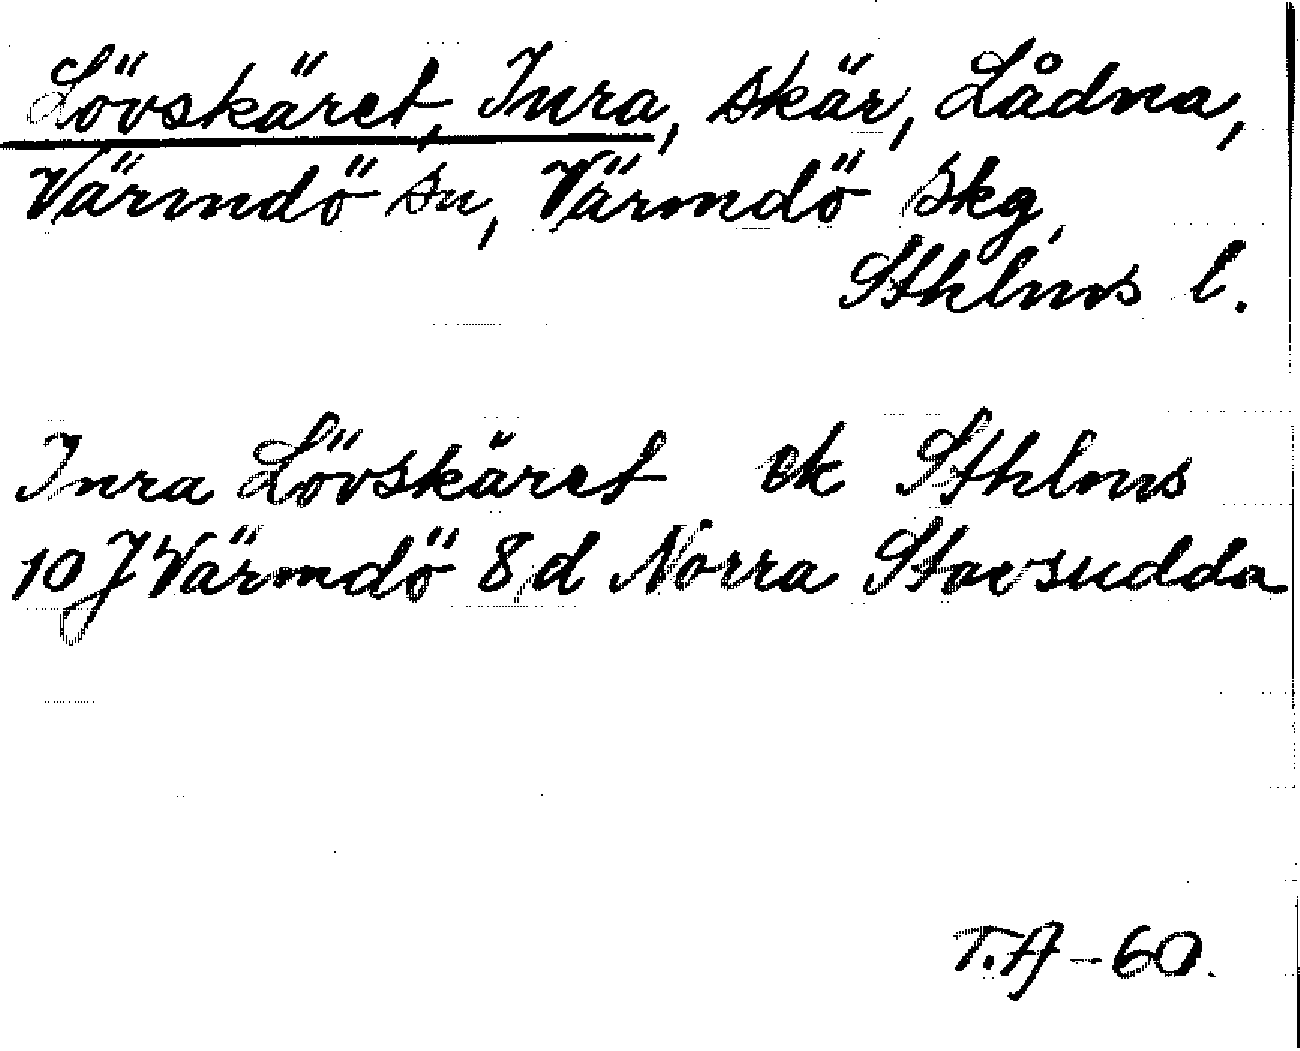 Lövskäret, Inra, skär, Lådna,
Värmdö sn, Värmdö skg,
Sthlms l.
Inra Lövskäret ek Sthlms
10 J Värmdö 8 d Norra Stavsudda
T.A-60.